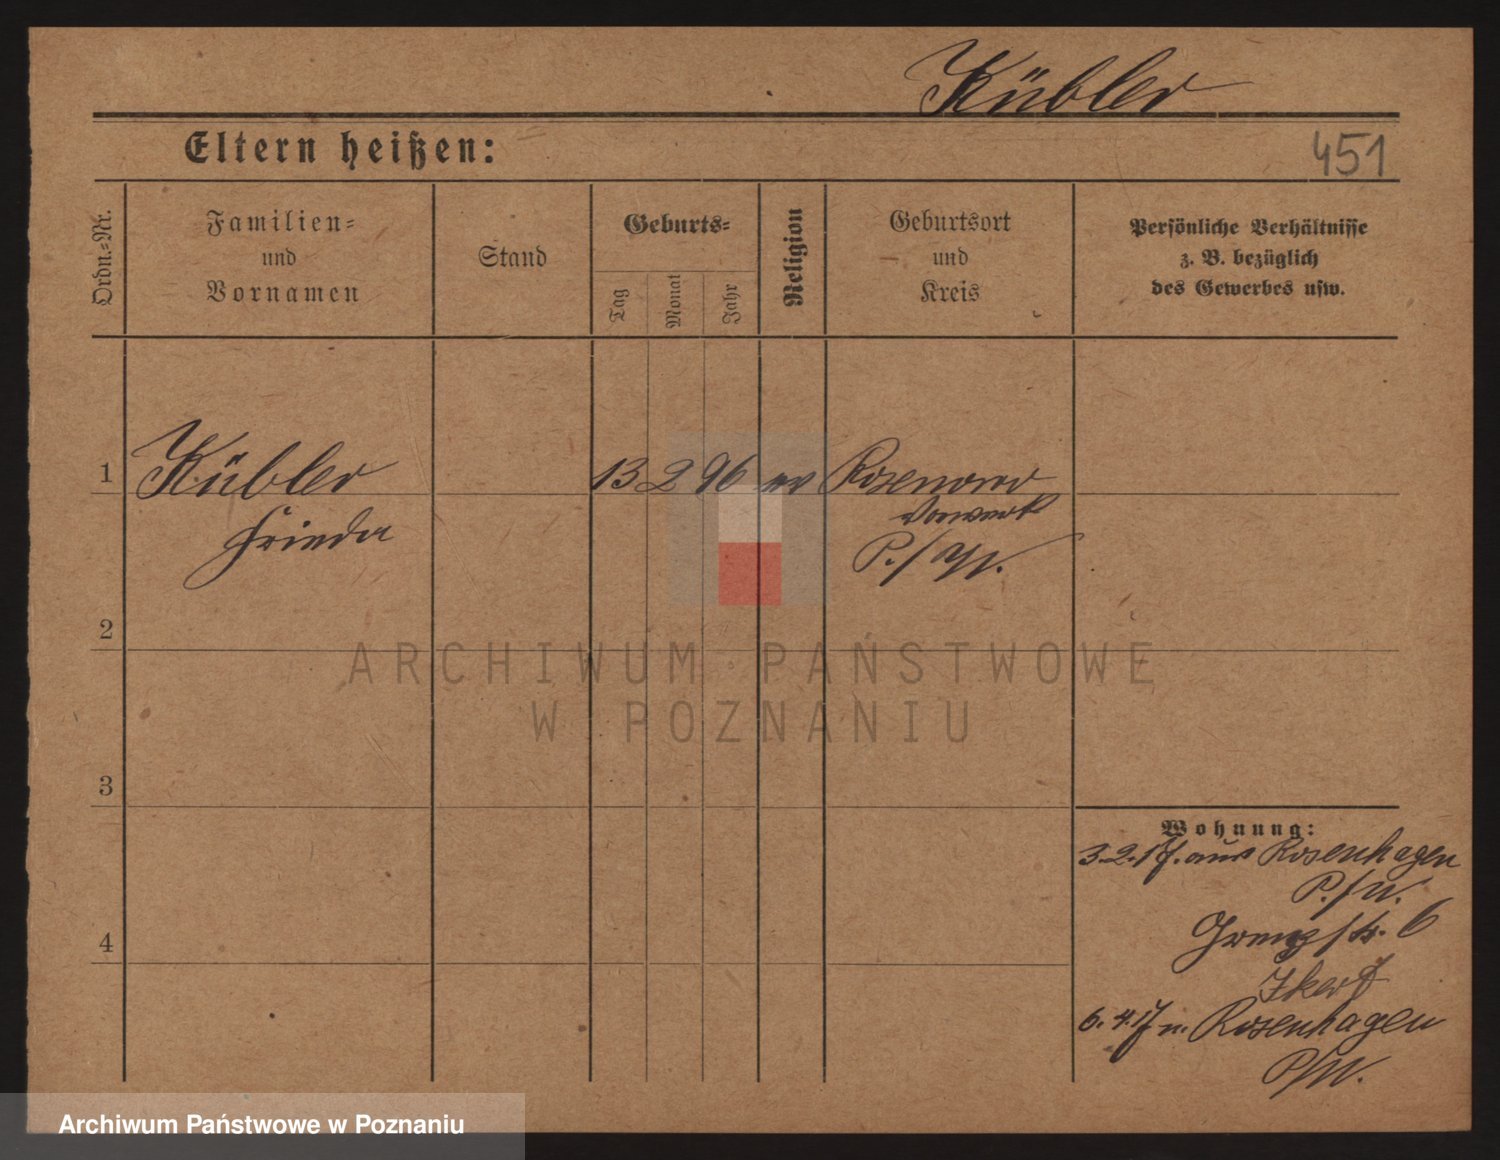 Kübler
Eltern heißen:
451
Ordn.=Nr.
Familien=
und
Vornamen
Stand
Geburts=
Tag
Monat
Jahr
Religion
Geburtsort
und
Kreis
Persönliche Verhältnisse
z. B. bezüglich
des Gewerbes usw.
1
Kübler
Frieda
13 2 96 ev
Vorwerk
2
ARCHIWUM PAŃSTWOWE
W POZNANIU
3
Wohnung:
3.2.17. aus Rosenhagen
P./W.
4
6
6.4.17 n. Rosenhagen
P/W.
Archiwum Państwowe w Poznaniu